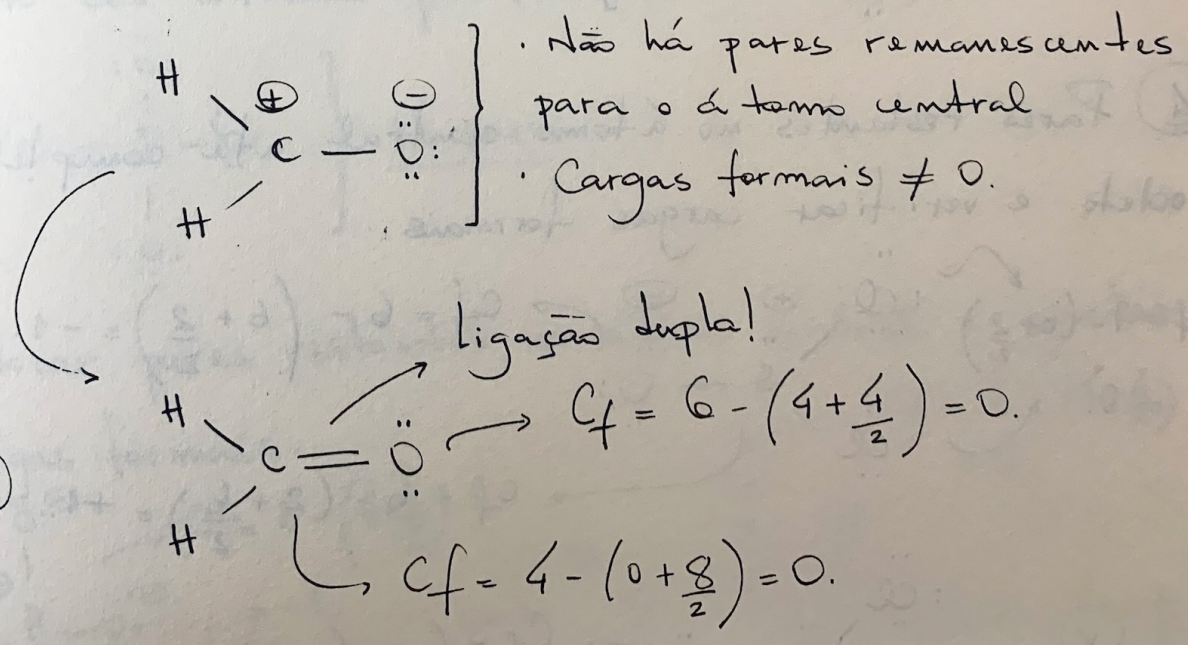 H
⊕ ⊖
C — Ö:
H
· Não há pares remanescentes
para o átomo central
· Cargas formais ≠ 0.
Ligação dupla!
H
C = Ö
H
Cf = 6 - (4 + 4/2) = 0.
Cf = 4 - (0 + 8/2) = 0.